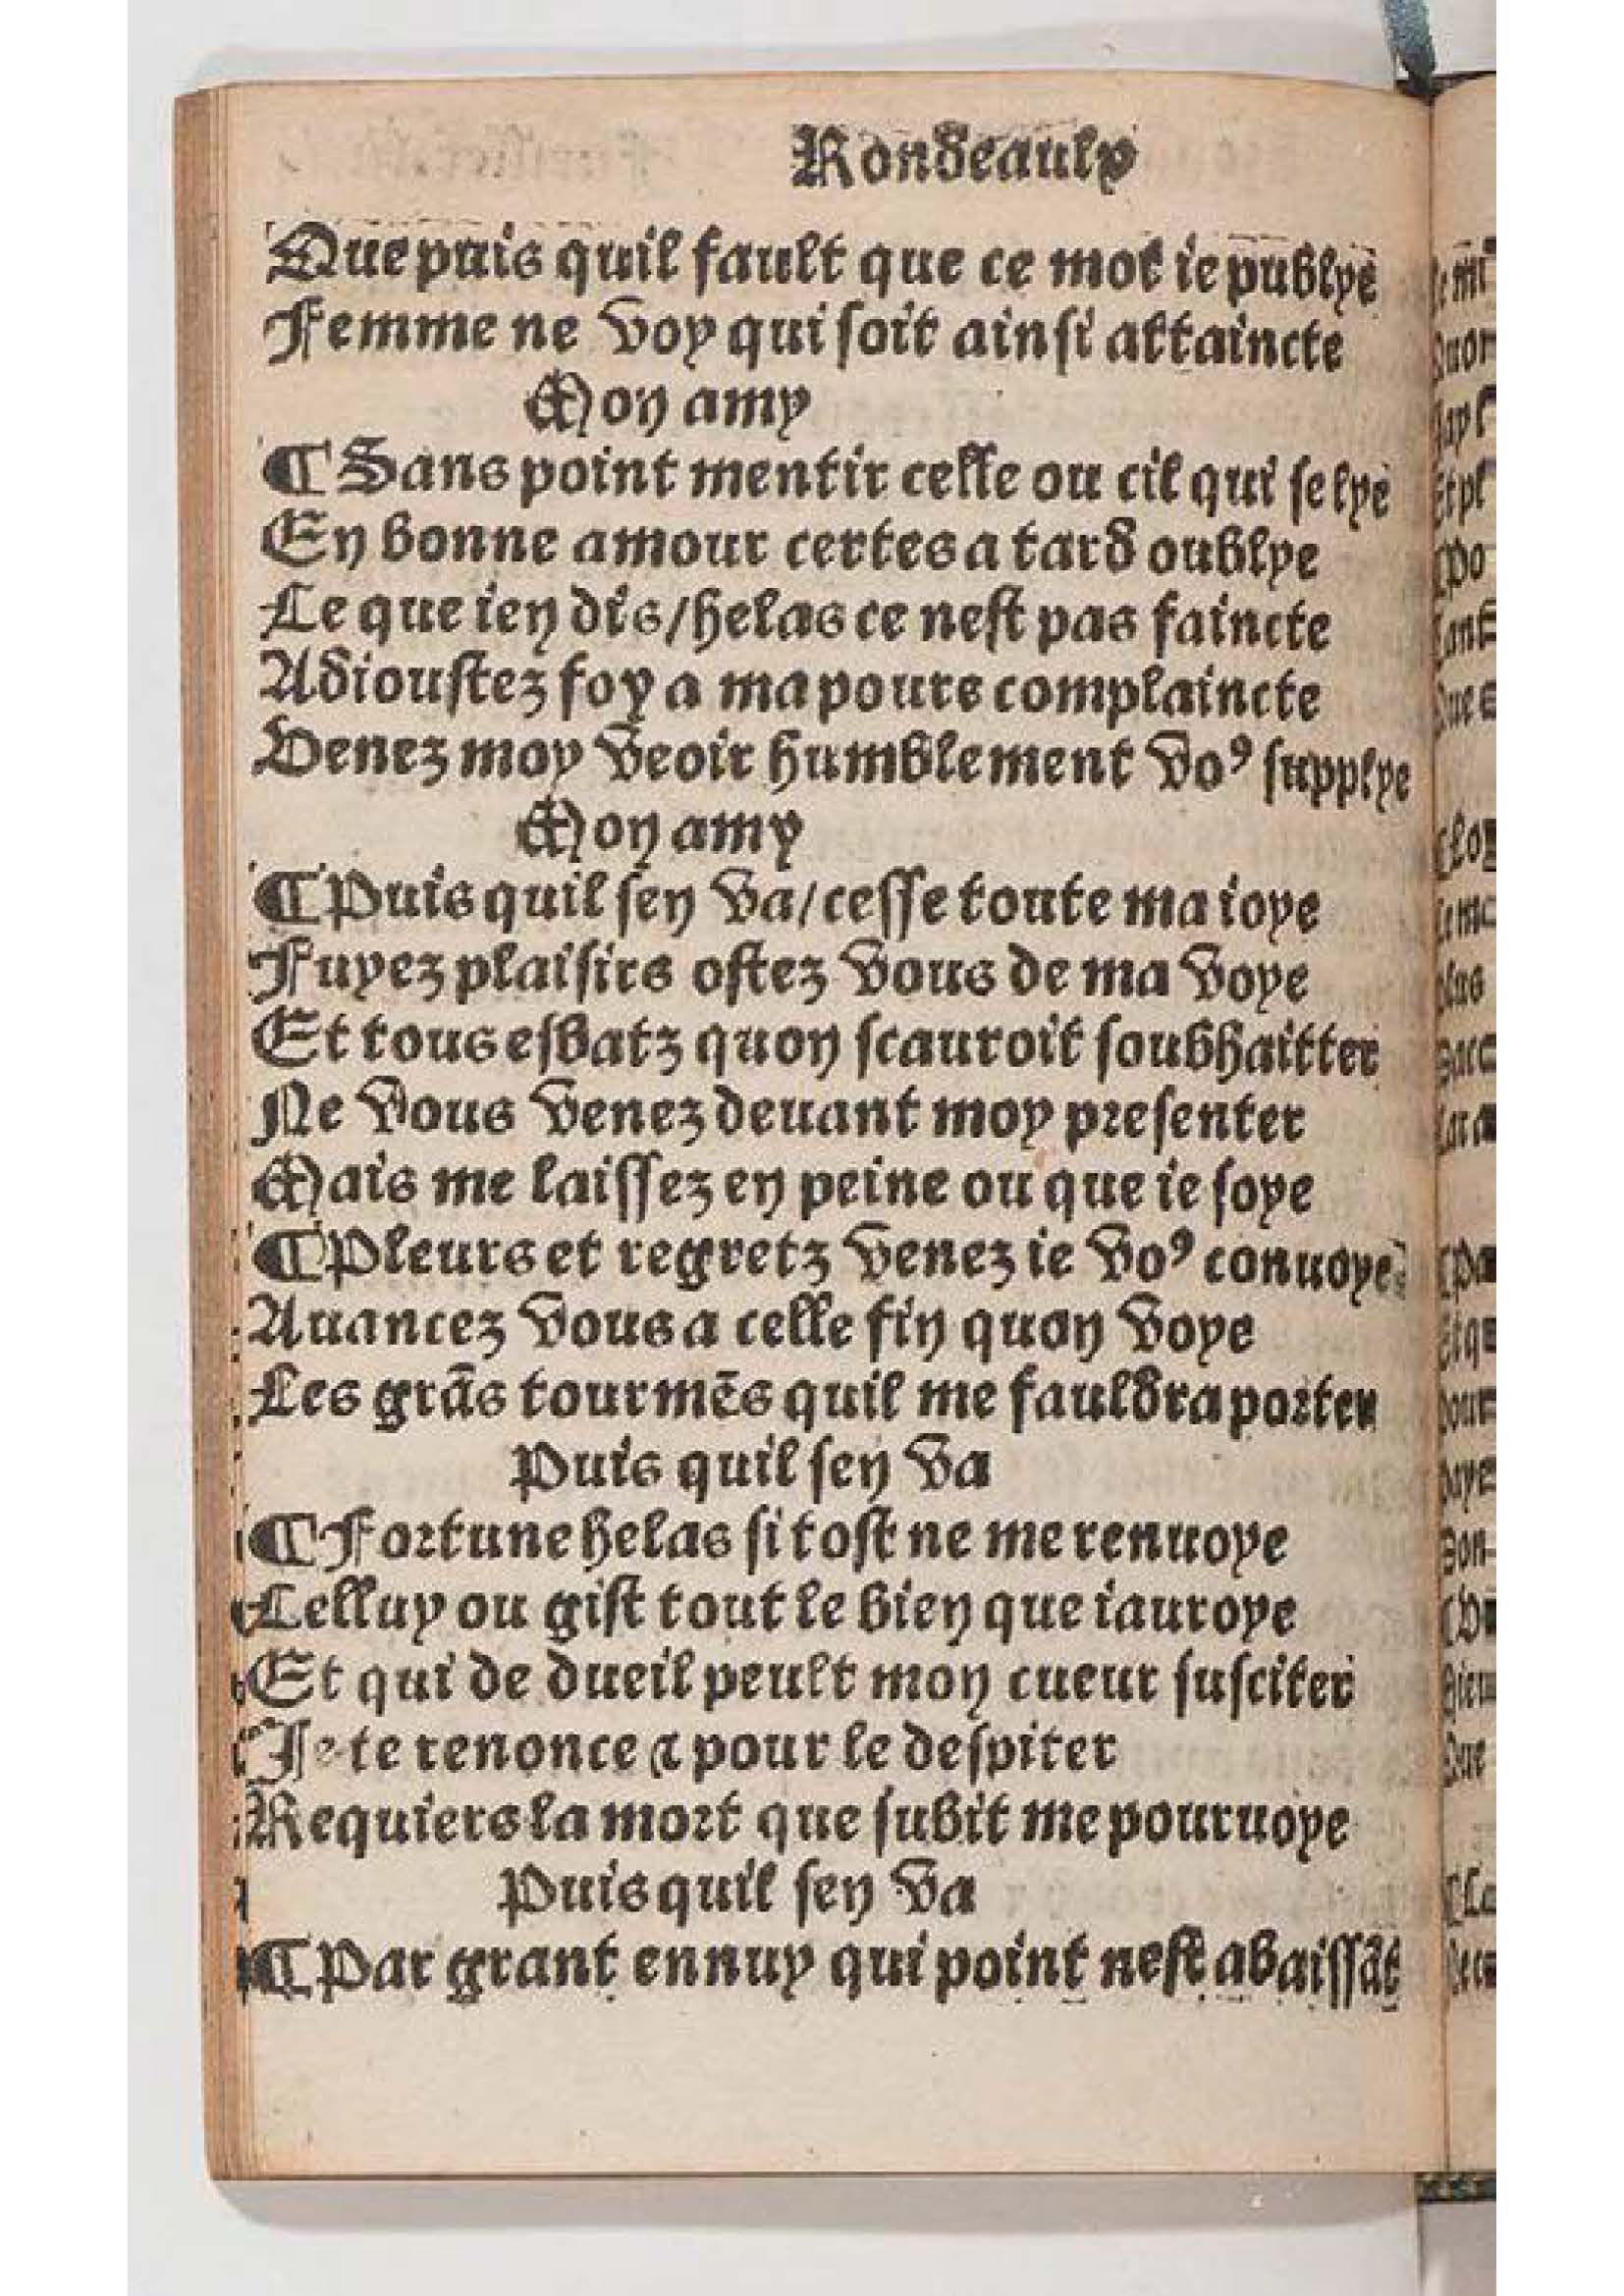 Rondeaulx
Que puis quil fault que ce mot ie publye
Femme ne voy qui soit ainsi attaincte
Mon amy
¶ Sans point mentir celle ou cil qui se lye
En bonne amour certes a tard oublye
Ce que ien dis/helas ce nest pas faincte
Adioustez foy a ma poure complaincte
Venez moy veoir humblement voꝰ supplye
Mon amy
¶ Puis quil sen va/cesse toute ma ioye
Fuyez plaisirs ostez vous de ma voye
Et tous esbatz quon scauroit soubhaitter
Ne vous venez deuant moy presenter
Mais me laissez en peine ou que ie soye
¶ Pleurs et regretz venez ie voꝰ conuoye
Auancez vous a celle fin quon voye
Les grãs tourmẽs quil me fauldra porter
Puis quil sen va
¶ Fortune helas si tost ne me renuoye
Celluy ou gist tout le bien que iauroye
Et qui de dueil peult mon cueur susciter
Je te renonce ⁊ pour le despiter
Requiers la mort que subit me pouruoye
Puis quil sen va
¶ Par grant ennuy qui point nest abaissãt